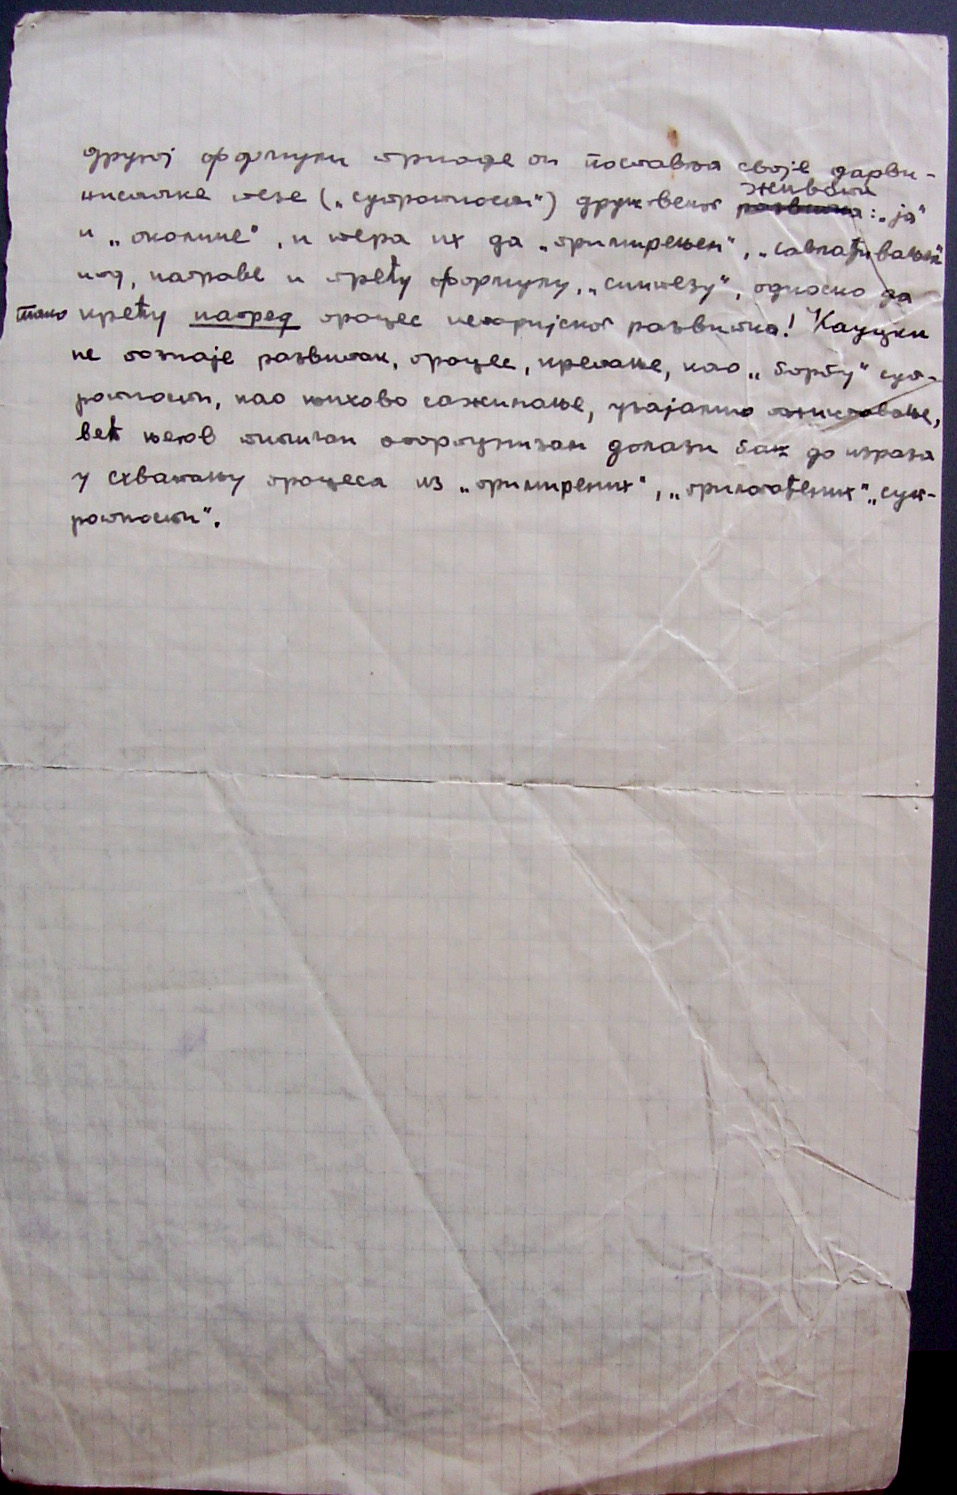 другој формули тријаде он поставља своје дарви-
нистичке тезе („супротности“) друштвеног живота: „ја“
и „околине“, и тера их да „примирењем“, „савлађивањем“
итд, направе и трећу формулу, „синтезу“, односно да
тако крећу напред процес историјског развитка! Кауцки
не познаје развитак, процес, кретање, као „борбу“ суп-
ротности, као њихово сажимање, узајамно
већ његов типичан опортунизам долази баш до израза
у схватању процеса из „примирених“, „прилагођених“ „суп-
ротности“.